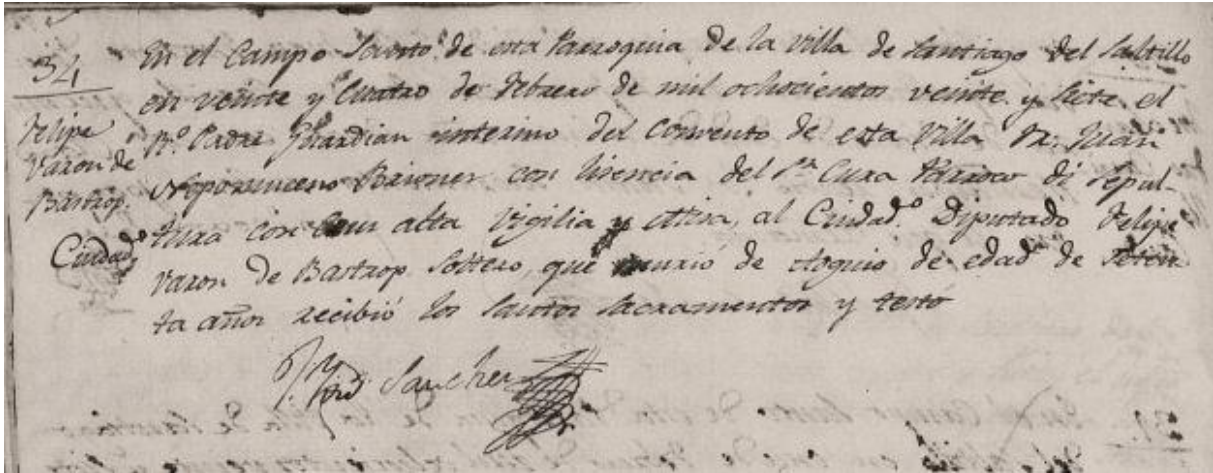 34
Felipe
Varon de
Bastrop.
Ciudad.º
En el Campo Santo de esta Parroquia de la Villa de Santiago del Saltillo
en veinte y Cuatro de Febrero de mil ochocientos veinte y siete, el
R.º Padre Guardian interino del Convento de esta Villa Fr. Juan
Neponuceno Briones con licencia del S.r Cura Párroco di sepul-
tura con alta Vigilia y Misa, al Ciudad.º Diputado Felipe
Varon de Bastrop Soltero, que murió de de edad de Seten
ta años recibió los Santos Sacramentos y testó
Sanches